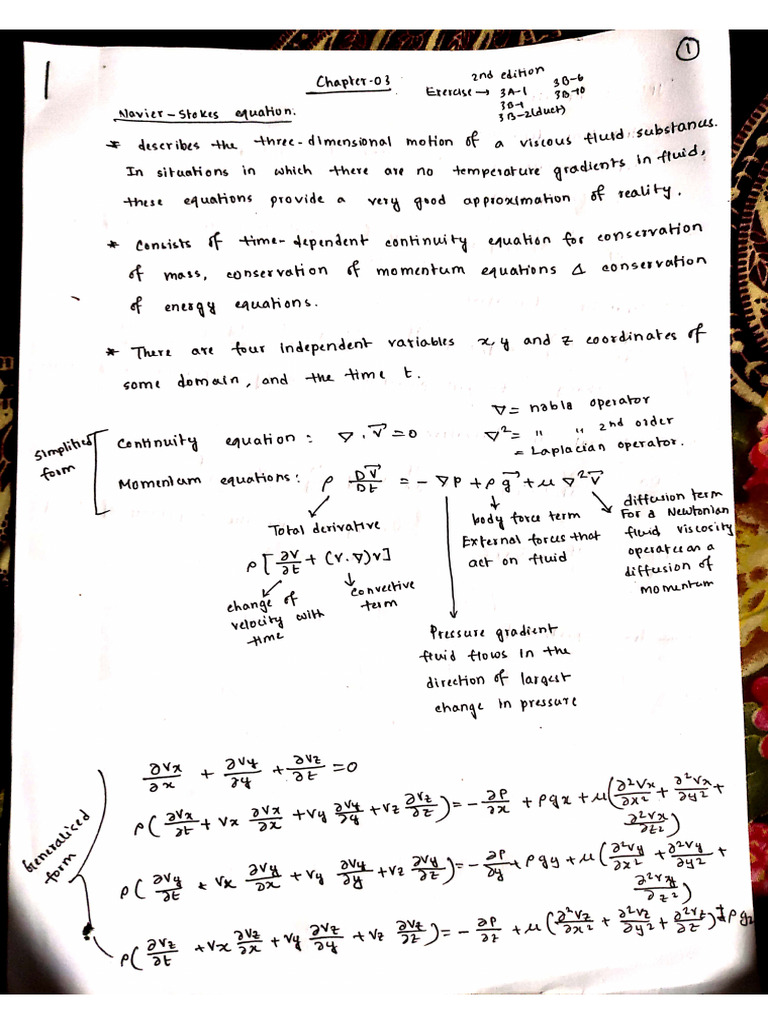 1
Chapter-03
2nd edition
Exercise → 3A-1 3B-6
3B-1 3B-10
3B-2(duct)
Navier-Stokes equation.
* describes the three-dimensional motion of a viscous fluid substances.
In situations in which there are no temperature gradients in fluid,
these equations provide a very good approximation of reality.
* Consists of time-dependent continuity equation for conservation
of mass, conservation of momentum equations & conservation
of energy equations.
* There are four independent variables x,y and z coordinates of
some domain, and the time t.
∇ = nabla operator
Simplified form
Continuity equation : ∇ · V⃗ = 0
∇² = " " 2nd order
= Laplacian operator.
Momentum equations: ρ DV⃗/Dt = -∇P + ρg⃗ + μ∇²V⃗
Total derivative
ρ[∂v/∂t + (v.∇)v]
change of velocity with time
convective term
body force term
External forces that
act on fluid
diffusion term
For a Newtonian
fluid, viscosity
operates on a
diffusion of
momentum
Pressure gradient
fluid flows in the
direction of largest
change in pressure
Generaliced form
∂Vx/∂x + ∂Vy/∂y + ∂Vz/∂t = 0
ρ(∂Vx/∂t + Vx ∂Vx/∂x + Vy ∂Vy/∂y + Vz ∂Vz/∂z) = -∂P/∂x + ρgx + μ(∂²Vx/∂x² + ∂²Vx/∂y² +
∂²Vx/∂z²)
ρ(∂Vy/∂t + Vx ∂Vy/∂x + Vy ∂Vy/∂y + Vz ∂Vy/∂z) = -∂P/∂y + ρgy + μ(∂²Vy/∂x² + ∂²Vy/∂y² +
∂²Vy/∂z²)
ρ(∂Vz/∂t + Vx ∂Vz/∂x + Vy ∂Vz/∂y + Vz ∂Vz/∂z) = -∂P/∂z + μ(∂²Vz/∂x² + ∂²Vz/∂y² + ∂²Vz/∂z²) + ρgz